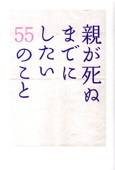 親が死ぬ
までに
したい
55
のこと